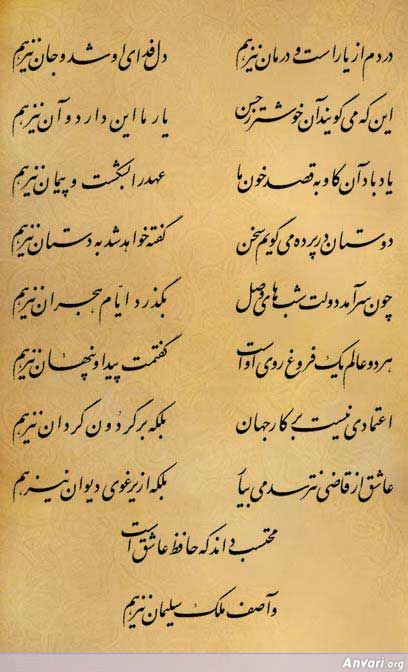 دردم از یار است و درمان نیز هم دل فدای او شد و جان نیز هم
این که می گویند آن خوشتر ز حسن یار ما این دارد و آن نیز هم
یاد باد آن کاو به قصد خون ما عهد را بشکست و پیمان نیز هم
دوستان در پرده می گویم سخن گفته خواهد شد به دستان نیز هم
چون سرآمد دولت شب های وصل بگذرد ایام هجران نیز هم
هر دو عالم یک فروغ روی اوست گفتمت پیدا و پنهان نیز هم
اعتمادی نیست بر کار جهان بلکه بر گردون گردان نیز هم
عاشق از قاضی نترسد می بیار بلکه از یرغوی دیوان نیز هم
محتسب داند که حافظ عاشق است
و آصف ملک سلیمان نیز هم
Anvari.org